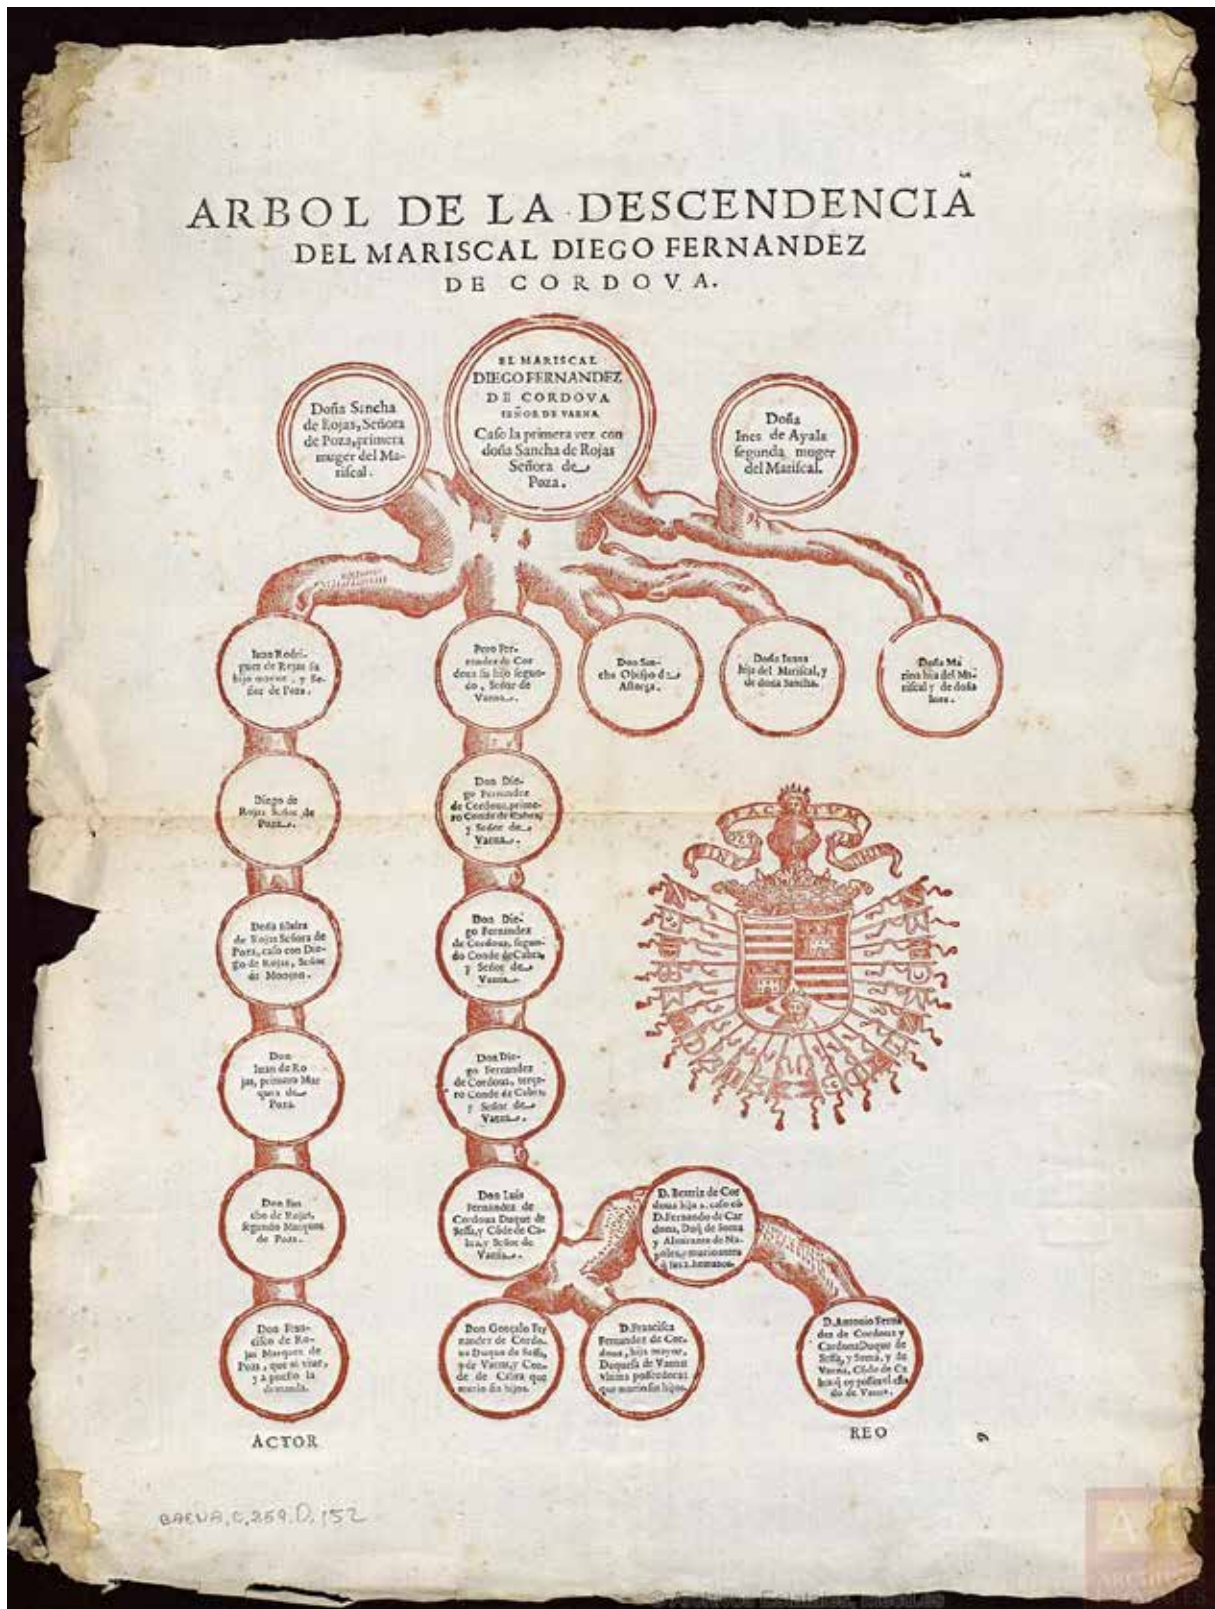 ARBOL DE LA DESCENDENCIA
DEL MARISCAL DIEGO FERNANDEZ
DE CORDOVA.
Doña Sancha
de Rojas, Señora
de Poza, primera
muger del Ma-
riscal.
EL MARISCAL
DIEGO FERNANDEZ
DE CORDOVA
SEÑOR DE VAENA
Caso la primera vez con
doña Sancha de Rojas
Señora de
Poza.
Doña
Ines de Ayala
segunda muger
del Mariscal.
Iuan Rodri-
guez de Rojas su
hijo mayor, y Se-
ñor de Poza.
Pero Fer-
nandez de Cor
doua su hijo segun-
do, Señor de
Vaena.
Don San-
cho Obispo de
Astorga.
Doña Iuana
hija del Mariscal, y
de doña Sancha.
Doña Ma
rina hija del Ma-
riscal y de doña
Ines.
Diego de
Rojas Señor de
Poza.
Don Die-
go Fernandez
de Cordoua, prime-
ro Conde de Cabra,
y Señor de
Vaena.
Doña Eluira
de Rojas Señora de
Poza, caso con Die-
go de Rojas, Señor
de Monçon.
Don Die-
go Fernandez
de Cordoua, segun-
do Conde de Cabra,
y Señor de
Vaena.
Don
Iuan de Ro
jas, primero Mar
ques de
Poza.
Don Die-
go Fernandez
de Cordoua, terce-
ro Conde de Cabra,
y Señor de
Vaena.
Don San
cho de Rojas,
segundo Marques
de Poza.
Don Luis
Fernandez de
Cordoua Duque de
Sessa, y Cõde de Ca-
bra, y Señor de
Vaena.
D. Beatriz de Cor
doua hija 2. caso cõ
D. Fernando de Car
dona, Duq̃ de Soma
y Almirante de Na-
poles, y murio antes
q̃ sus 2. hermanos.
Don Fran-
cisco de Ro-
jas Marques de
Poza, que oi viue,
y a puesto la
demanda.
Don Gonçalo Fer
nandez de Cordo-
ua Duque de Sessa,
y de Vaena, y Con-
de de Cabra que
murio sin hijos.
D. Francisca
Fernandez de Cor-
doua, hija mayor,
Duquesa de Vaena
vltima posseedora
que murio sin hijos.
D. Antonio Ferna
dez de Cordoua y
Cardona Duque de
Sessa, y Soma, y de
Vaena, Cõde de Ca
bra q̃ oy possee el esta
do de Vaena.
ACTOR
REO
BAENA, C, 259, D, 152
© Archivos Estatales, mecd.es